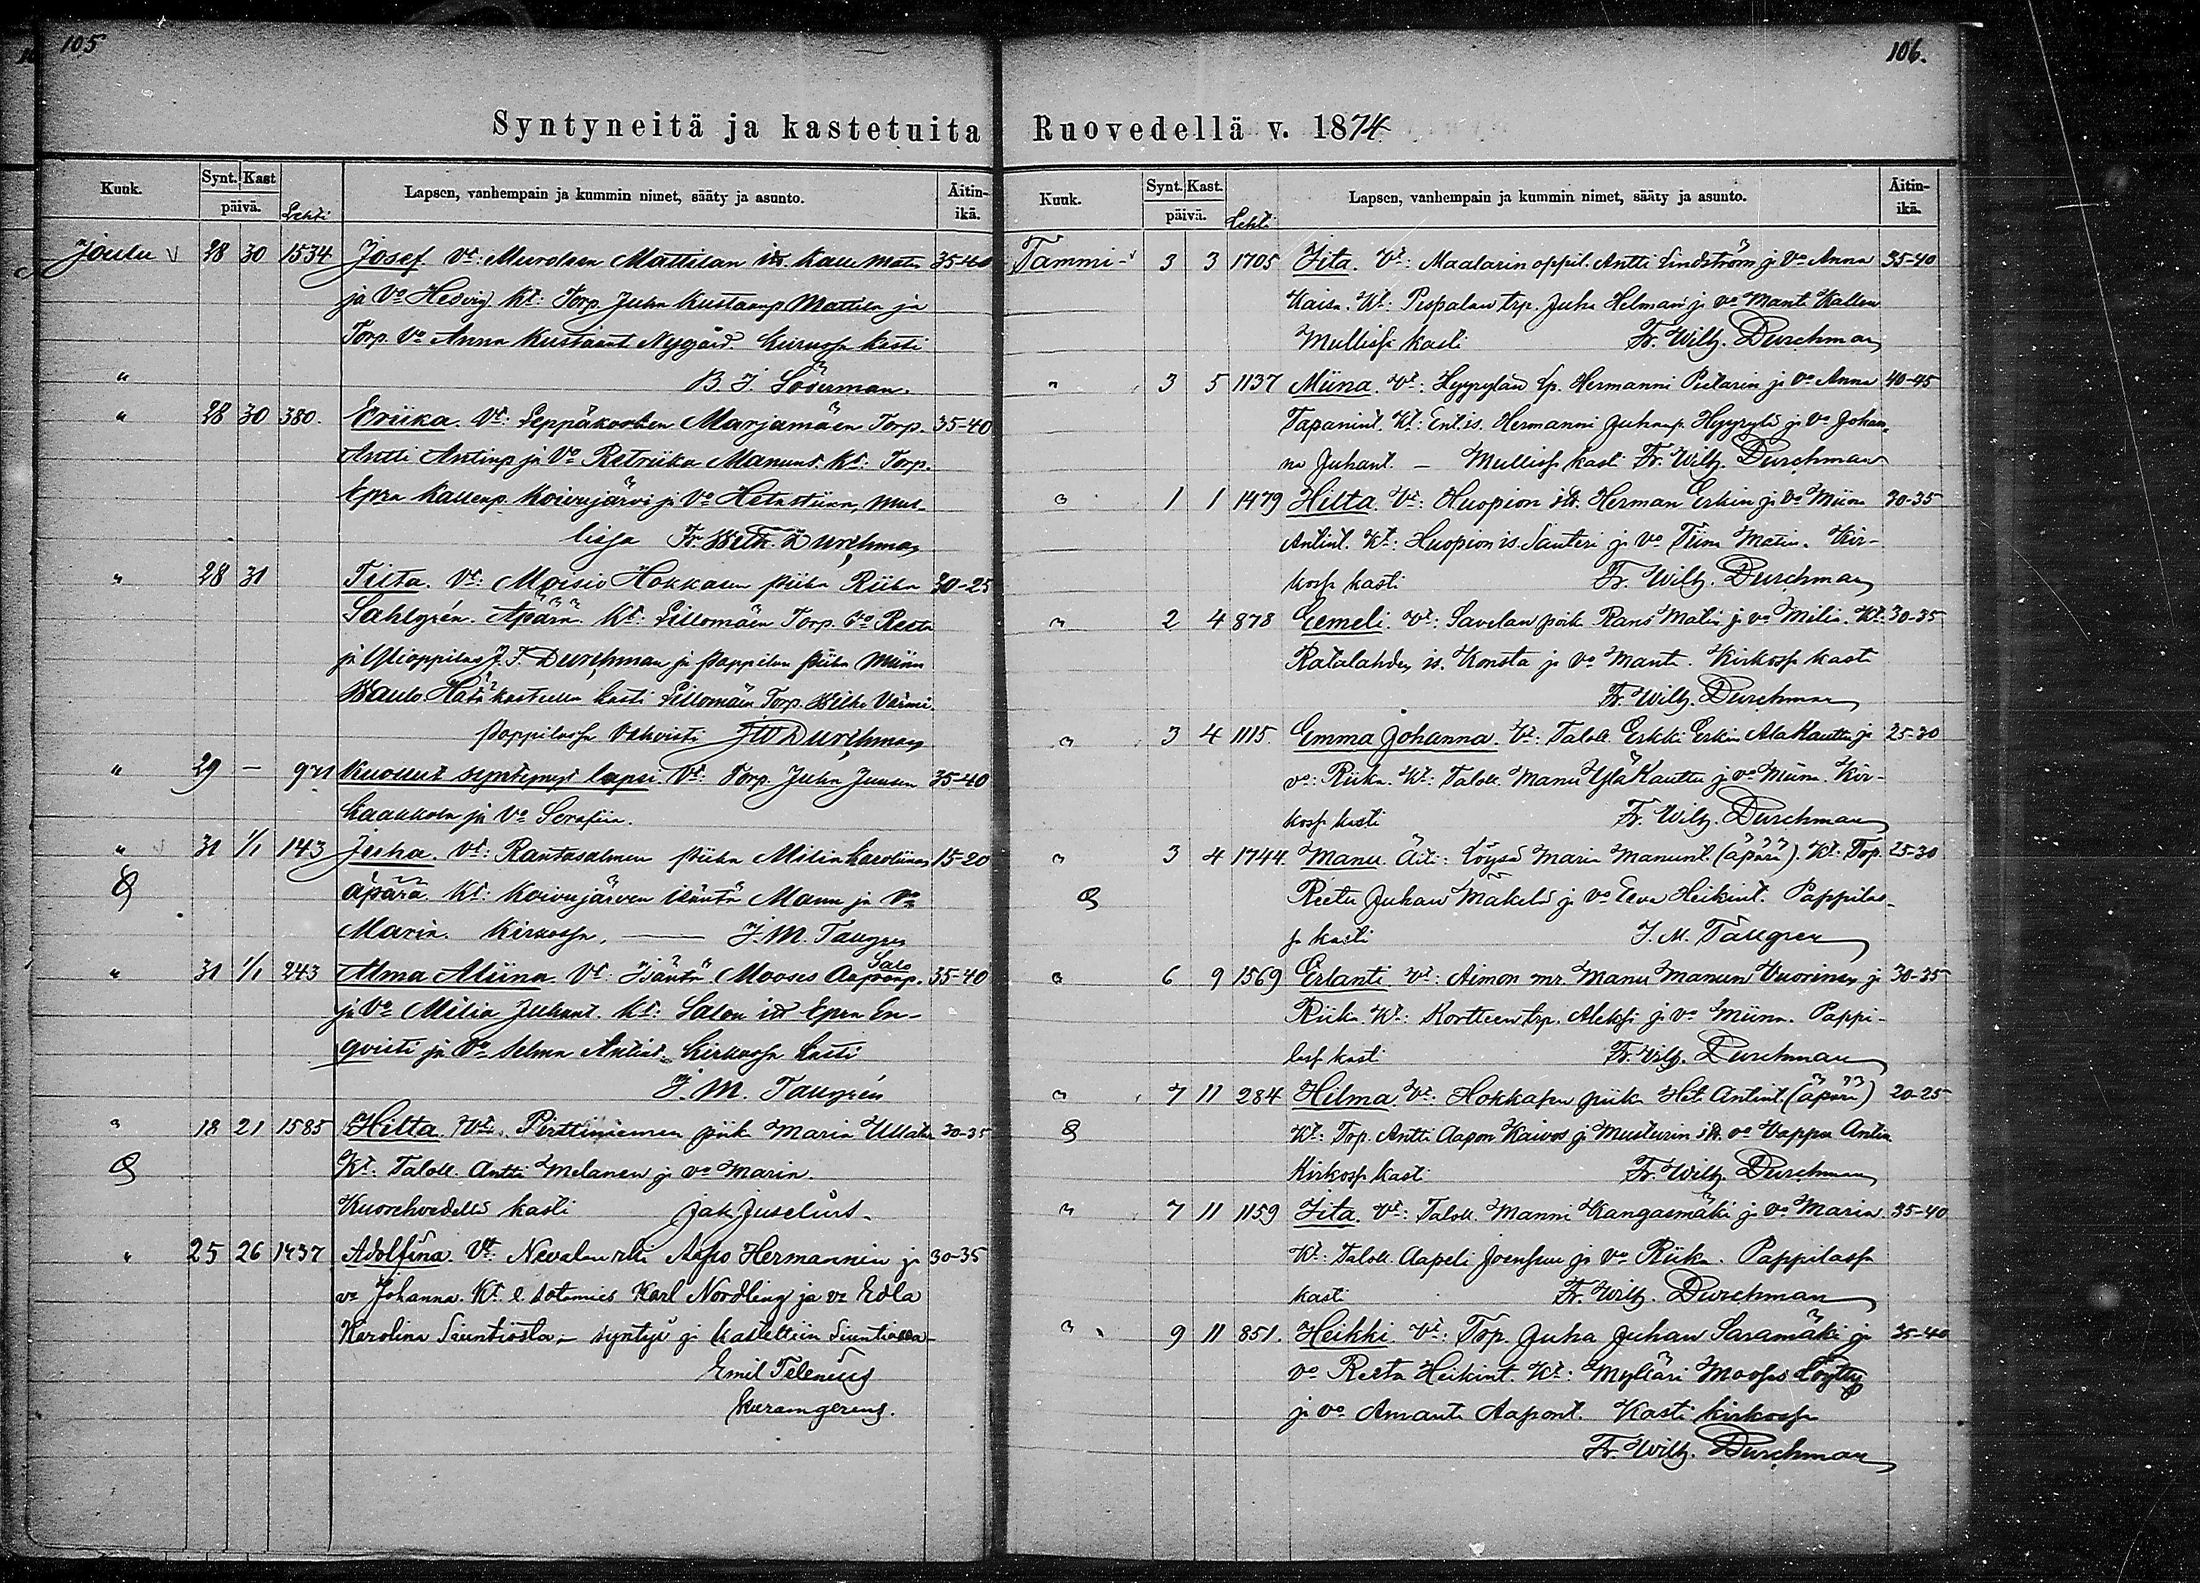 105
Syntyneitä ja kastetuita
Kuuk. Synt. Kast päivä. Lehti Lapsen, vanhempain ja kummin nimet, sääty ja asunto. Äitin-ikä.
Joulu 28 30 1534 Josef. Vt: Mattilan Kalle 35-40
ja Vo Hedvig Kt: Torp. Juha Kustaanp Mattila ja
Torp. Vo Anna Kustaant Nygård. kasti
" B. J. Söderman.
" 28 30 380. Eriika. Vt: Marjamäen Torp. 35-40
Antti Antinp ja Vo Retriika Manunt. Kt: Torp.
Epra Kallenp. Koivujärvi ja Vo Mul-
lissa Fr. Wilh. Durchman
" 28 31 Tilta. Vt: Moisio Hokkasen piika Riika 30-25
Sahlgrén. Äpärä. Kt: Sillomäen Torp. Vo Reeta
ja Ylioppilas J. F. Durchman ja pappilan piika Miina
kasti Sillomäen Torp.
pappilassa Vahvisti Durchman
" 29 — 971 Kuollut syntynyt lapsi. Vt: Torp. Juha Juusen 35-40
Kaakkola ja Vo Serafiia.
" 31 1/1 143 Juha. Vt: Rantasalmen piika Milia Karoliina 15-20
äpärä. Kt: Koivujärven isäntä Manu ja Vo
Maria. Kirkossa. — J. M. Tallgren
" 31 1/1 243 Alma Aliina. Vt: Isäntä Mooses Aaponp. Salo 35-40
ja Vo Milia Juhant. Kt: Salon isä Epra En-
qvisti ja Vo Selma Antint. Kirkossa kasti
J. M. Tallgrén
" 18 21 1585 Hilta. Vt: Perttiniemen piika Maria 30-35
Kt: Taloll. Antti Melanen ja vo Maria.
Kuorehvedellä kasti Jak Juselius.
" 25 26 1437 Adolfina. Vt: Nevalan Aapo Hermannin ja 30-35
vo Johanna. Kt. e. sotamies Karl Nordling ja vo Edla
Karolina Siuntiosta, — syntyi ja kastettiin Siuntiossa
Emil Telenius
106.
Ruovedellä v. 1874
Kuuk. Synt. Kast. päivä. Lehti Lapsen, vanhempain ja kummin nimet, sääty ja asunto. Äitin-ikä.
Tammi- 3 3 1705 Iita. Vt: Maalarin oppil. Antti Lindström ja Vo Anna 35-40
Kaisa. Kt: Pispalan trp. Juha Helman ja vo Mant. Kallen
Mullissa kasti Fr. Wilh. Durchman
" 3 5 1137 Miina. Vt: Hyyrylän Hermanni Pietarin ja Vo Anna 40-45
Tapanint. Kt: Ent. is. Hermanni Juhanp. Hyyrylä ja Vo Johan-
na Juhant. — Mullissa kasti Fr. Wilh. Durchman
" 1 1 1479 Hilta. Vt: Huopion Herman Erkin ja Vo Miina 30-35
Antint. Kt: Huopion is. Santeri ja Vo Tiina Matin. Kir-
kossa kasti Fr. Wilh. Durchman
" 2 4 878 Eemeli. Vt: Savelan poik Rans Matin ja vo Milia. Kt: 30-35
Ratalahden is. Konsta ja Vo Mant. Kirkossa kasti
Fr. Wilh. Durchman
" 3 4 1115. Emma Johanna. Vt: Taloll. Erkki Erkin Ala Kauttu ja 25-30
vo: Riika. Kt: Taloll. Manu Ylä Kauttu ja vo Miina. Kir-
kossa kasti Fr. Wilh. Durchman
" 3 4 1744. Manu. Äiti: löysä Maria Manunt. (äpärä). Kt: Torp. 25-30
Reetu Juhan Mäkelä ja vo Eeva Heikint. Pappilas-
sa kasti J. M. Tallgren
" 6 9 1569 Erlanti. Vt: Aimon mr. Manu Manun Vuorinen ja 30-35
Riika. Kt: Kortteen trp. Aleksi ja vo Miina. Pappi-
lassa kasti Fr. Wilh. Durchman
" 7 11 284 Hilma. Vt: Hokkasen piika Het. Antint. (äpärä) 20-25
Kt: Torp. Antti Aapon Kaivos ja Musturin vo Vappu Antin
Kirkossa kasti Fr. Wilh. Durchman
" 7 11 1159 Iita. Vt: Taloll. Manni Kangasmäki ja vo Maria 35-40
Kt: Taloll. Aapeli Joensuu ja Vo Riika. Pappilassa
kasti Fr. Wilh. Durchman
" 9 11 851. Heikki. Vt: Torp. Juha Juhan Saramäki ja 35-40
vo Reeta Heikint. Kt: Mylläri Mooses Löytty
ja vo Amanta Aapont. Kasti kirkossa
Fr. Wilh. Durchman